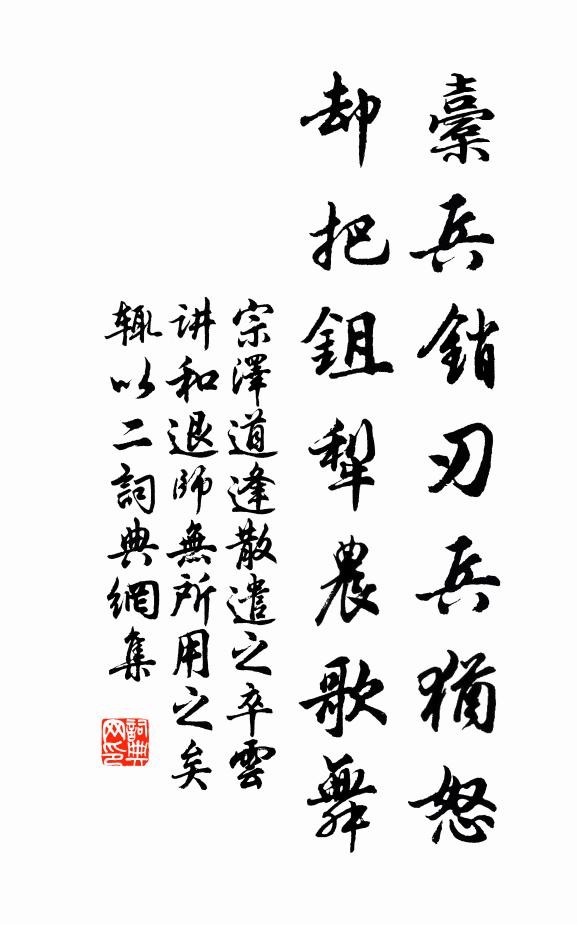 櫜兵銷刃兵猶怒
却把鉏犂農歌舞
宗澤道逢散遣之卒雲
讲和退師無所用之矣
輒以二詞典網集
詞典網印